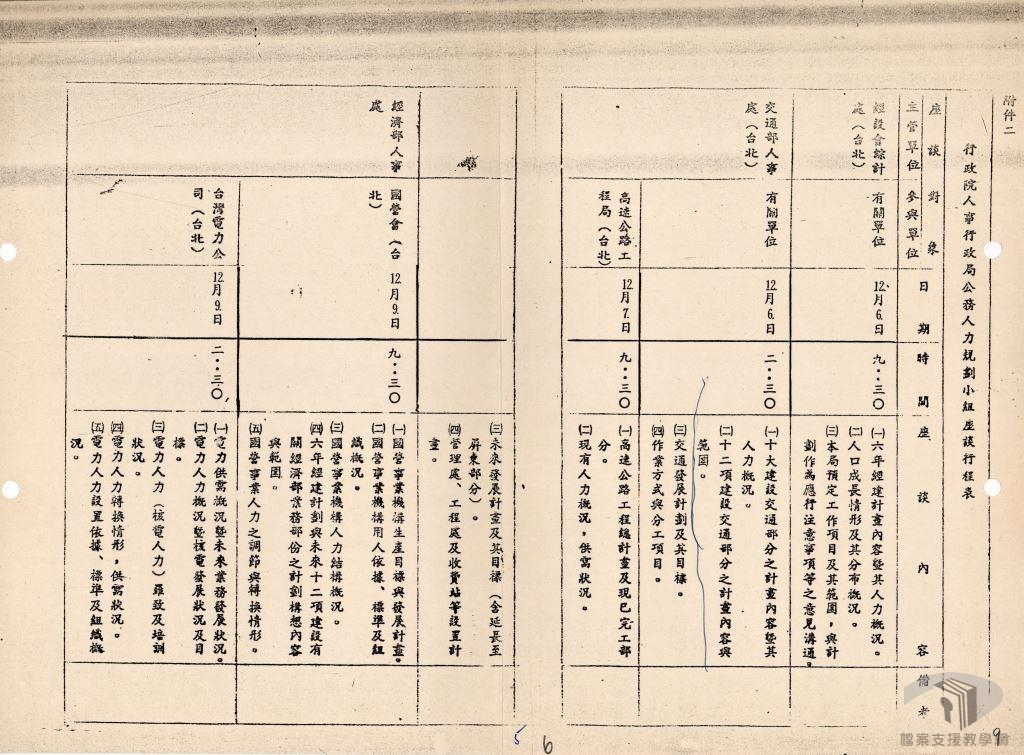 附件二
行政院人事行政局公務人力規劃小組座談行程表
座談對象
主管單位
參與單位
日期
時間
座談內容
備考
經設會綜計
處（台北）
有關單位
12月6日
九··三〇
㈠六年經建計畫內容暨其人力概況。
㈡人口成長情形及其分布概況。
㈢本局預定工作項目及其範圍，與計
劃作為應行注意事項等之意見溝通。
交通部人事
處（台北）
有關單位
12月6日
二··三〇
㈠十大建設交通部分之計畫內容暨其
人力概況。
㈡十二項建設交通部分之計畫內容與
範圍。
㈢交通發展計劃及其目標。
㈣作業方式與分工項目。
高速公路工
程局（台北）
12月7日
九··三〇
㈠高速公路工程總計畫及現已完工部
分。
㈡現有人力概況，供需狀況。
㈢未來發展計畫及其目標（含延長至
屏東部分）。
㈣管理處、工程處及收費站等設置計
畫。
經濟部人事
處
國營會（台
北）
12月9日
九··三〇
㈠國營事業機構生產目標與發展計畫。
㈡國營事業機構用人依據、標準及組
織概況。
㈢國營事業機構人力結構概況。
㈣六年經建計劃與未來十二項建設有
關經濟部業務部份之計劃構想內容
與範圍。
㈤國營事業人力之調節與轉換情形。
台灣電力公
司（台北）
12月9日
二··三〇
㈠電力供需概況暨未來業務發展狀況。
㈡電力人力概況暨核電發展狀況及目
標。
㈢電力人力（核電人力）羅致及培訓
狀況。
㈣電力人力轉換情形，供需狀況。
㈤電力人力設置依據、標準及組織概
況。
5
6
9
檔案支援教學網